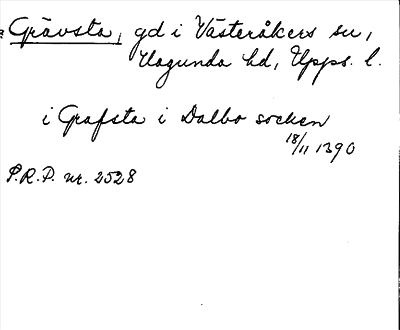 Grävsta, gd i Västeråkers sn,
Hagunda hd, Upps. l.
i Grafsta i Dalbo socken
18/11 1390
S.R.P. nr. 2528